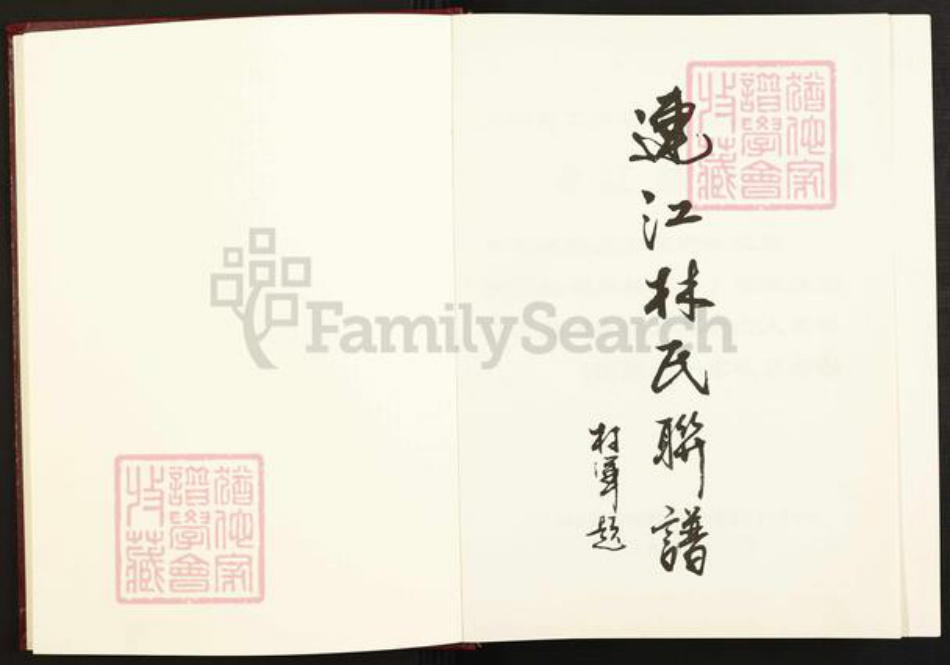 猶他家
譜學會
收藏
連江林氏聯譜
題
FamilySearch
猶他家
譜學會
收藏